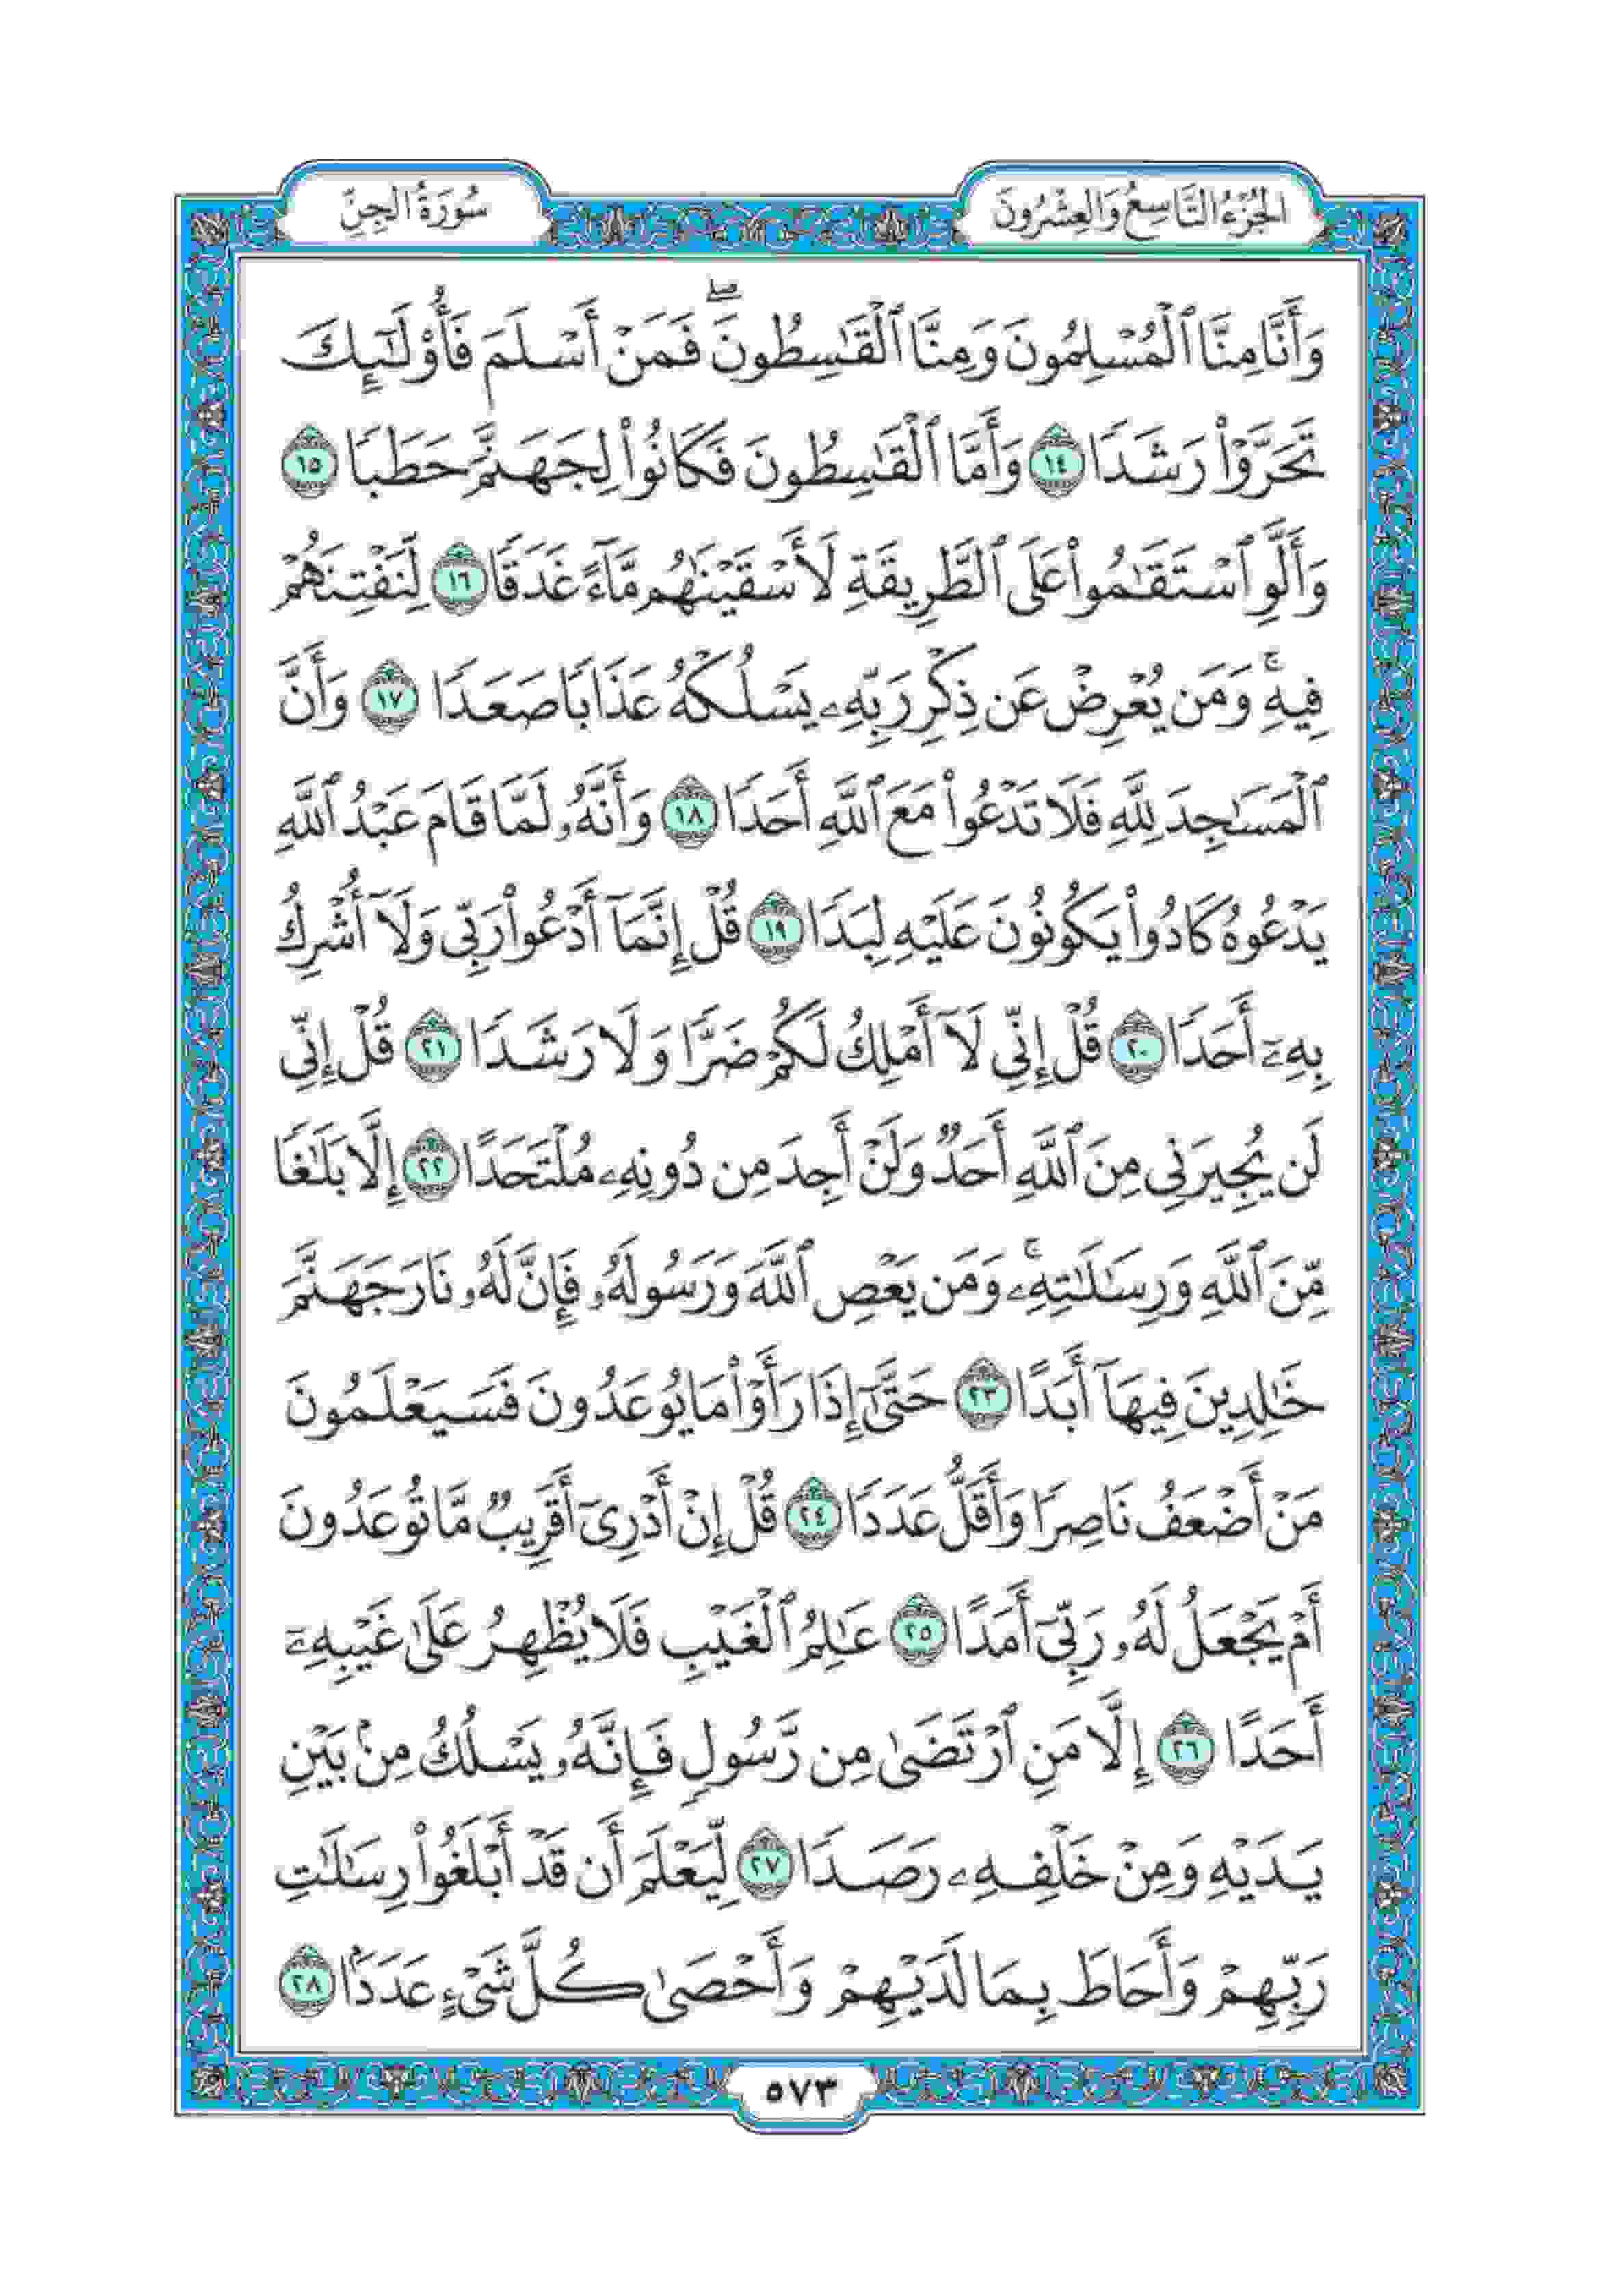 الجُزْءُ التَّاسِعُ وَالعِشْرُونَ
سُورَةُ الجِنِّ
وَأَنَّا مِنَّا ٱلْمُسْلِمُونَ وَمِنَّا ٱلْقَٰسِطُونَۖ فَمَنْ أَسْلَمَ فَأُوْلَٰٓئِكَ
تَحَرَّوْاْ رَشَدًا ١٤ وَأَمَّا ٱلْقَٰسِطُونَ فَكَانُواْ لِجَهَنَّمَ حَطَبًا ١٥
وَأَلَّوِ ٱسْتَقَٰمُواْ عَلَى ٱلطَّرِيقَةِ لَأَسْقَيْنَٰهُم مَّآءً غَدَقًا ١٦ لِّنَفْتِنَهُمْ
فِيهِۚ وَمَن يُعْرِضْ عَن ذِكْرِ رَبِّهِۦ يَسْلُكْهُ عَذَابًا صَعَدًا ١٧ وَأَنَّ
ٱلْمَسَٰجِدَ لِلَّهِ فَلَا تَدْعُواْ مَعَ ٱللَّهِ أَحَدًا ١٨ وَأَنَّهُۥ لَمَّا قَامَ عَبْدُ ٱللَّهِ
يَدْعُوهُ كَادُواْ يَكُونُونَ عَلَيْهِ لِبَدًا ١٩ قُلْ إِنَّمَآ أَدْعُواْ رَبِّى وَلَآ أُشْرِكُ
بِهِۦٓ أَحَدًا ٢٠ قُلْ إِنِّى لَآ أَمْلِكُ لَكُمْ ضَرًّا وَلَا رَشَدًا ٢١ قُلْ إِنِّى
لَن يُجِيرَنِى مِنَ ٱللَّهِ أَحَدٌ وَلَنْ أَجِدَ مِن دُونِهِۦ مُلْتَحَدًا ٢٢ إِلَّا بَلَٰغًا
مِّنَ ٱللَّهِ وَرِسَٰلَٰتِهِۦۚ وَمَن يَعْصِ ٱللَّهَ وَرَسُولَهُۥ فَإِنَّ لَهُۥ نَارَ جَهَنَّمَ
خَٰلِدِينَ فِيهَآ أَبَدًا ٢٣ حَتَّىٰٓ إِذَا رَأَوْاْ مَا يُوعَدُونَ فَسَيَعْلَمُونَ
مَنْ أَضْعَفُ نَاصِرًا وَأَقَلُّ عَدَدًا ٢٤ قُلْ إِنْ أَدْرِىٓ أَقَرِيبٌ مَّا تُوعَدُونَ
أَمْ يَجْعَلُ لَهُۥ رَبِّىٓ أَمَدًا ٢٥ عَٰلِمُ ٱلْغَيْبِ فَلَا يُظْهِرُ عَلَىٰ غَيْبِهِۦٓ
أَحَدًا ٢٦ إِلَّا مَنِ ٱرْتَضَىٰ مِن رَّسُولٍ فَإِنَّهُۥ يَسْلُكُ مِنۢ بَيْنِ
يَدَيْهِ وَمِنْ خَلْفِهِۦ رَصَدًا ٢٧ لِّيَعْلَمَ أَن قَدْ أَبْلَغُواْ رِسَٰلَٰتِ
رَبِّهِمْ وَأَحَاطَ بِمَا لَدَيْهِمْ وَأَحْصَىٰ كُلَّ شَىْءٍ عَدَدًۢا ٢٨
٥٧٣